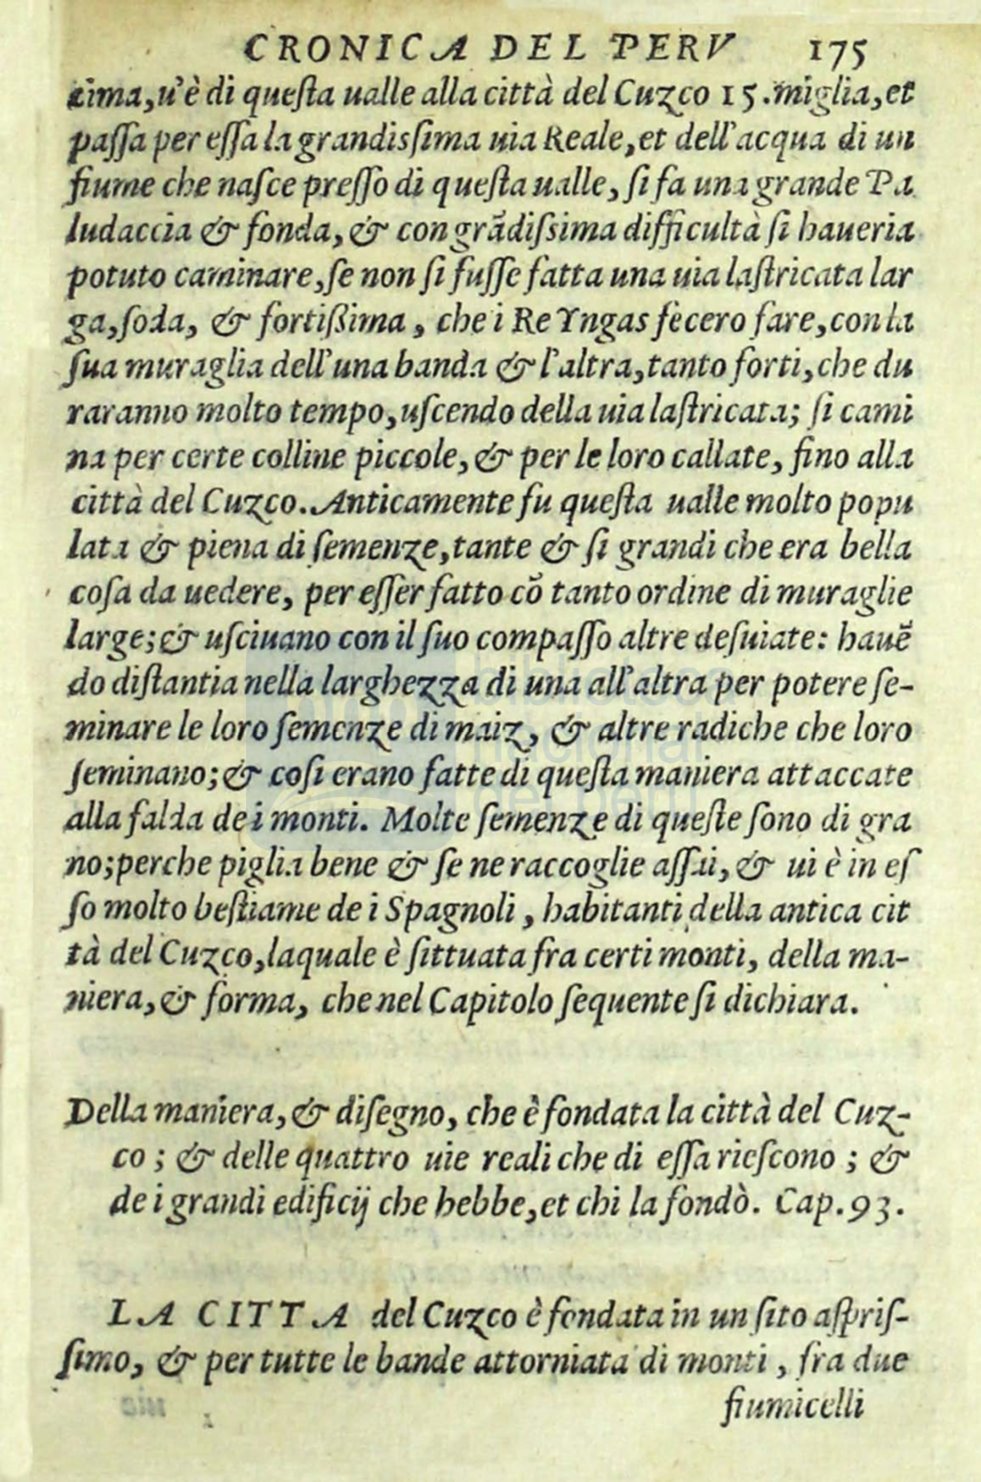 CRONICA DEL PERV 175
cima,u'è di questa ualle alla città del Cuzco 15.miglia,et
passa per essa la grandissima uia Reale,et dell'acqua di un
fiume che nasce presso di questa ualle, si fa una grande Pa
ludaccia & fonda,& con grãdissima difficultà si haueria
potuto caminare,se non si fusse fatta una uia lastricata lar
ga,soda, & fortissima, che i Re Yngas fecero fare,con la
sua muraglia dell'una banda & l'altra,tanto forti,che du
raranno molto tempo,uscendo della uia lastricata; si cami
na per certe colline piccole,& per le loro callate, fino alla
città del Cuzco. Anticamente fu questa ualle molto popu
lata & piena di semenze,tante & si grandi che era bella
cosa da uedere, per esser fatto cõ tanto ordine di muraglie
large;& usciuano con il suo compasso altre desuiate: hauẽ
do distantia nella larghezza di una all'altra per potere se-
minare le loro semenze di maiz, & altre radiche che loro
seminano;& cosi erano fatte di questa maniera attaccate
alla falda de i monti. Molte semenze di queste sono di gra
no;perche piglia bene & se ne raccoglie assai,& ui è in es
so molto bestiame de i Spagnoli, habitanti della antica cit
tà del Cuzco,laquale è sittuata fra certi monti, della ma-
niera,& forma, che nel Capitolo sequente si dichiara.
Della maniera,& disegno, che è fondata la città del Cuz-
co; & delle quattro uie reali che di essa riescono; &
de i grandi edificij che hebbe,et chi la fondò. Cap.93.
LA CITTA del Cuzco è fondata in un sito aspris-
simo, & per tutte le bande attorniata di monti, fra due
fiumicelli